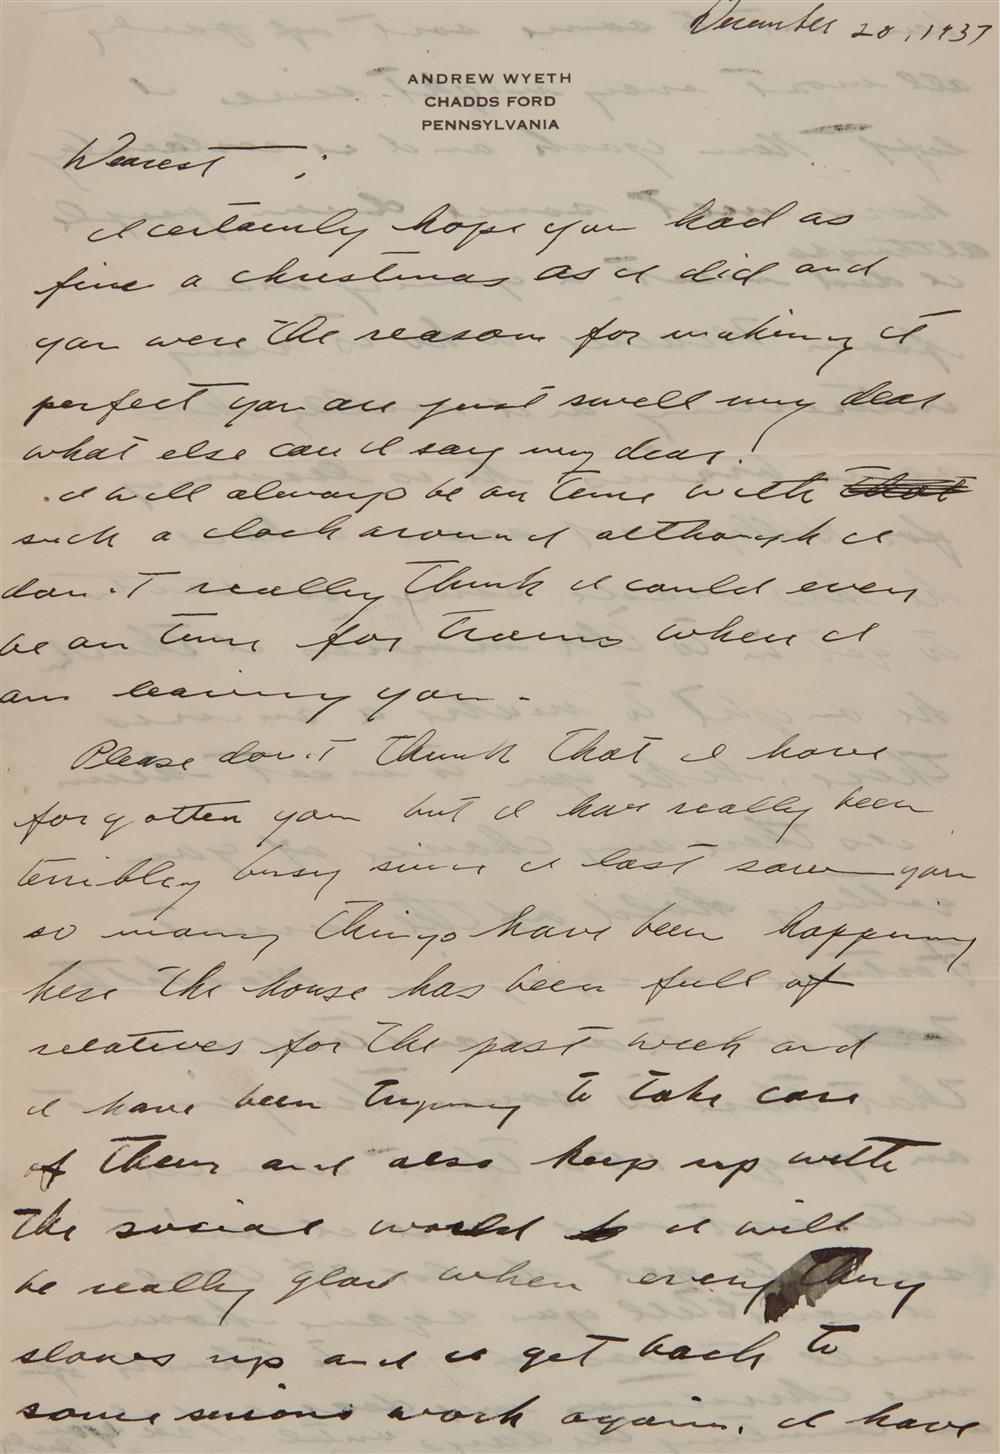 December 28, 1937
ANDREW WYETH
CHADDS FORD
PENNSYLVANIA
Dearest ;
I certainly hope you had as
fine a christmas as I did and
you were the reason for making it
perfect you are just swell my dear
what else can I say my dear!
I will always be on time with that
such a clock around although I
don't really think I could ever
be on time for trains when I
am leaving you.
Please don't think that I have
forgotten you but I have really been
terribley busy since I last saw you
so many things have been happing
here the house has been full of
relatives for the past week and
I have been trying to take care
of them and also keep up with
the social world I will
be really glad when every thing
slows up and I get back to
some serious work again. I have